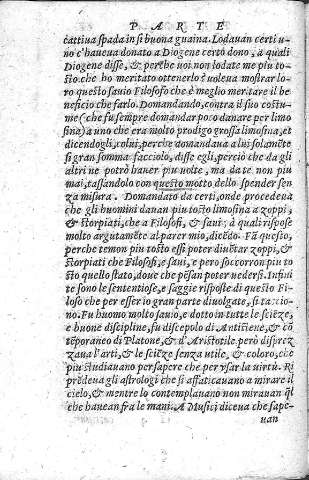 PARTE
cattiua spada in sì buona guaina. Lodauan certi u-
no c'haueua donato a Diogene certo dono, a quali
Diogene disse, & perche uoi non lodate me piu to-
sto che ho meritato ottenerlo? uoleua mostrar lo-
ro questo sauio Filosofo che è meglio meritare il be
neficio che farlo. Domandando, contra il suo costu-
me (che fu sempre domandar poco danare per limo
sina) a uno che era molto prodigo grossa limosina, et
dicendogli, colui, perche domandaua a lui solamēte
sì gran somma facciolo, disse egli, perciò che da gli
altri ne potrò hauer piu uolte, ma da te non piu
mai, tassandolo con questo motto dello spender sen
za misura. Domandato da certi, onde procedeua
che gli huomini dauan piu tosto limosina a zoppi,
& storpiati, che a Filosofi, & saui, a quali rispose
molto argutamēte al parer mio, dicēdo. Fa questo,
perche temon piu tosto essi poter diuētar zoppi, &
storpiati che Filosofi, e saui, e però soccorron piu to
sto quello stato, doue che pēsan poter uedersi. Infini
te sono le sententiose, e saggie risposte di questo Fi-
loso che per esser io gran parte diuolgate, si tacio-
no. Fu huomo molto sauio, e dotto in tutte le sciēze,
e buone discipline, fu discepolo di Anticiene, & cō
tēporaneo di Platone, & d'Aristotile però disprez
zaua l'arti, & le sciēze senza utile, & coloro, che
piu studiauano per sapere che per vsar la uirtù. Ri
prēdeua gli astrologi che si affaticauano a mirare il
cielo, & mentre lo contemplauano non mirauan ql
che haueano fra le mani. A Musici diceua che sape-
uan